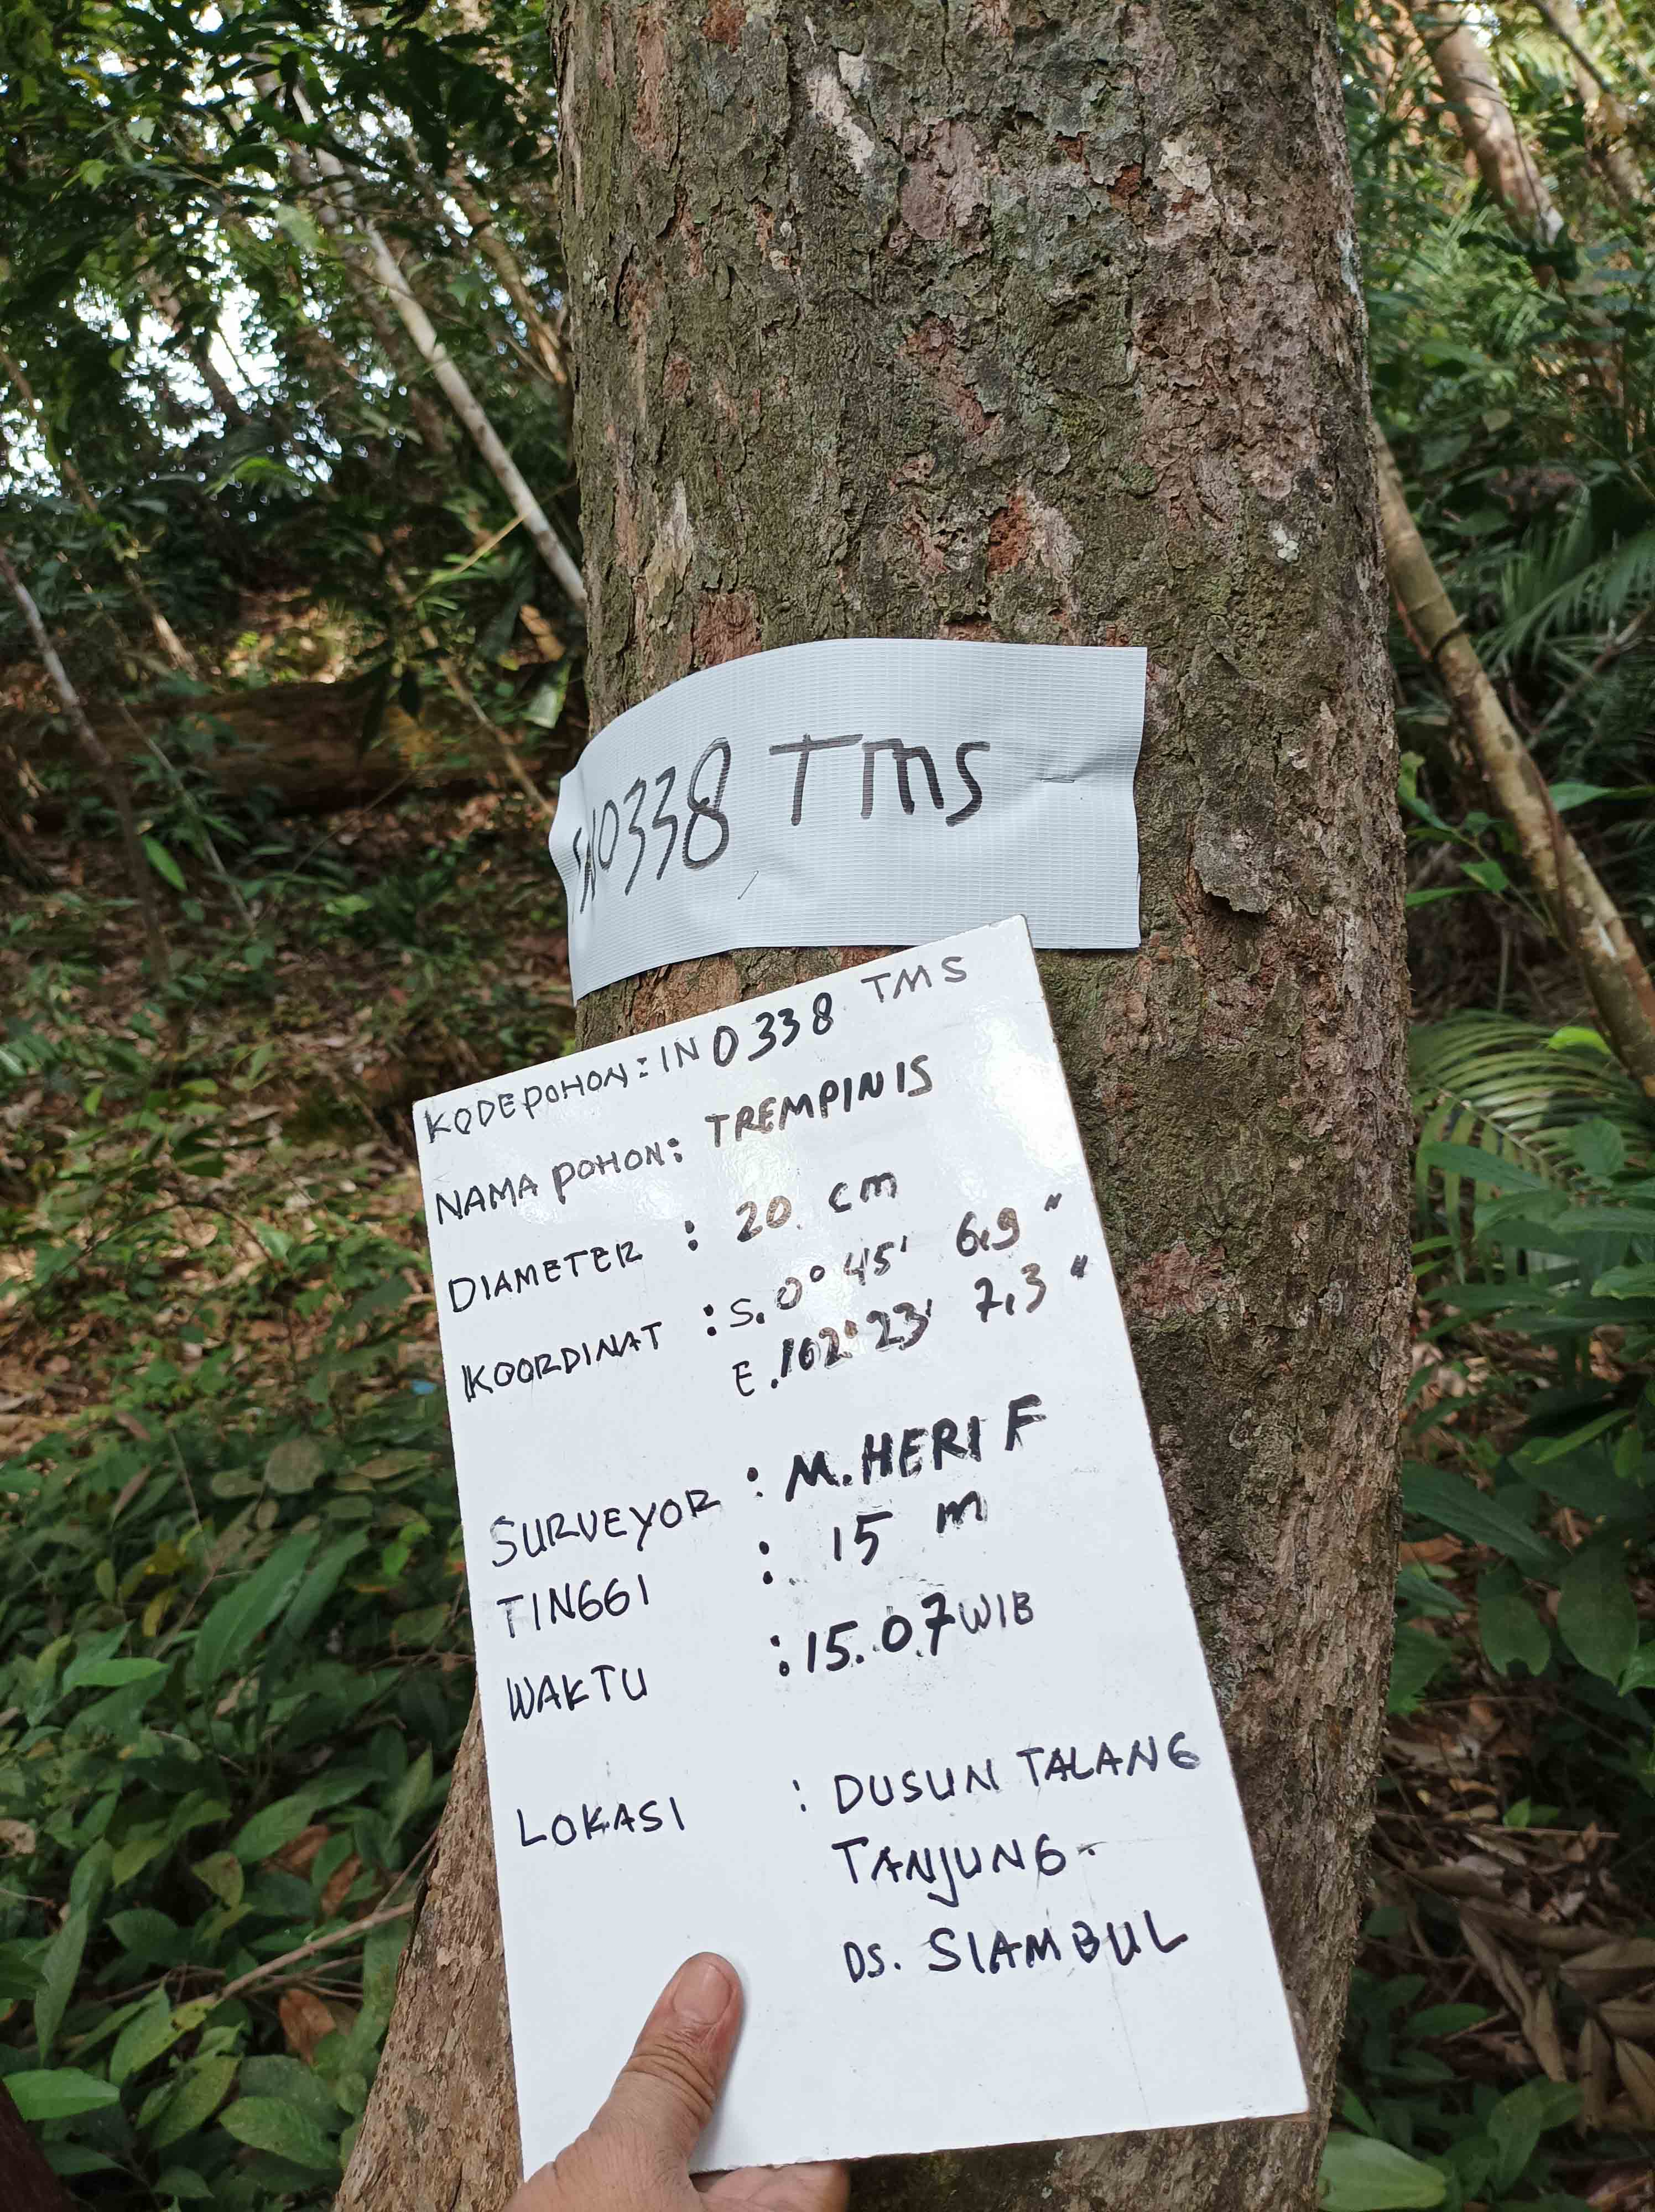 IN0338 TMS
KODE POHON: IN 0338 TMS
NAMA POHON: TREMPINIS
DIAMETER : 20 cm
KOORDINAT : S. 0° 45' 6,9"
E. 102° 23' 7,3"
SURVEYOR : M. HERI F
TINGGI : 15 m
WAKTU : 15.07 WIB
LOKASI : DUSUN TALANG
TANJUNG.
DS. SIAMBUL